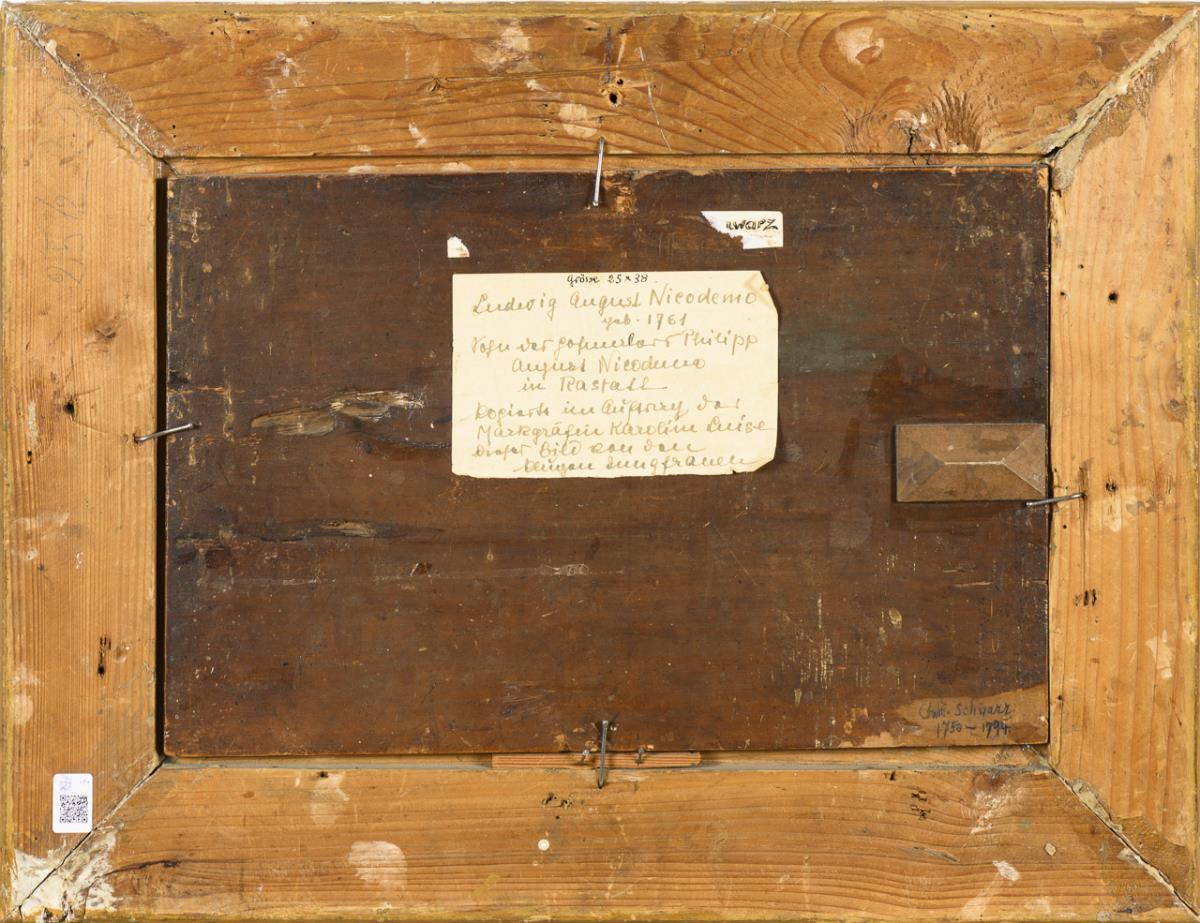 warz
Grösse 25 x 38
Ludwig August Nicodemo
geb. 1761
Sohn des Philipp
August Nicodemo
in Rastatt
kopierte im Auftrag der
Markgräfin Karolin Luise
dieses Bild von den
klugen Jungfrauen
Schwarz
1750 - 1794